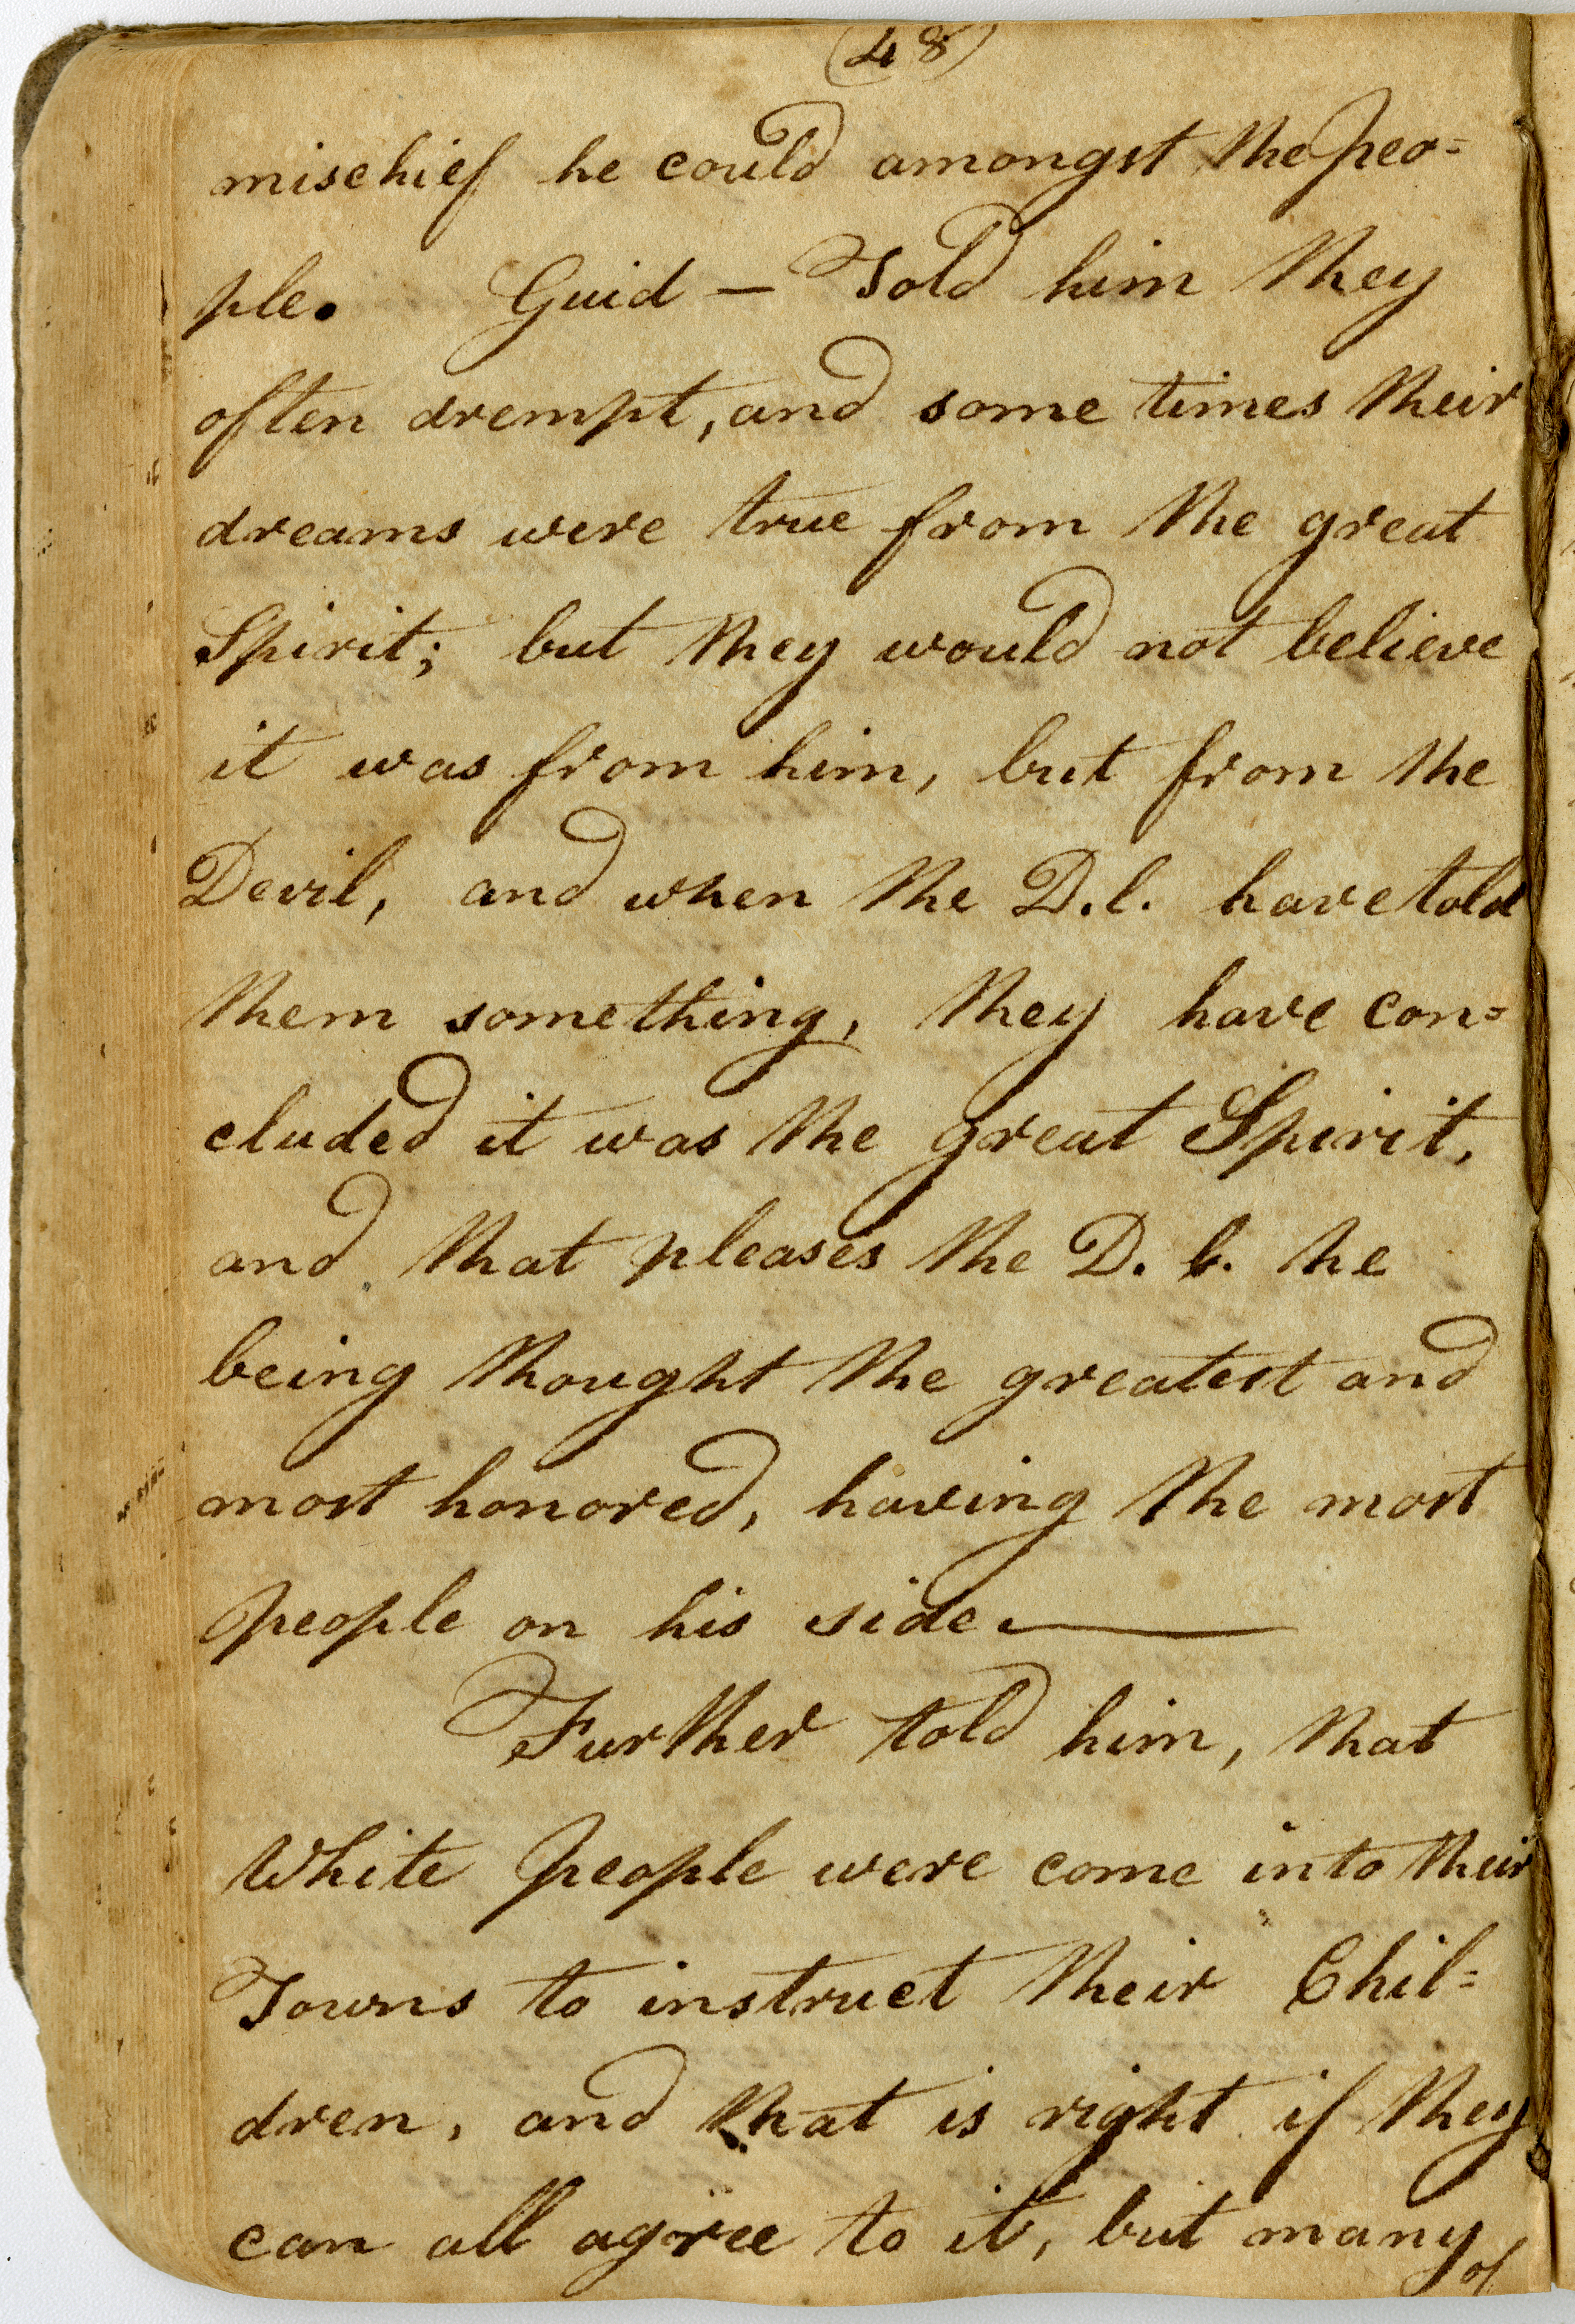 (48)
mischief he could amongst the peo=
ple. Guid — Told him they
often drempt, and some times their
dreams were true from the great
Spirit; but they would not believe
it was from him, but from the
Devil, and when the D.l. have told
them something, they have con=
cluded it was the great Spirit,
and that pleases the D. l. he
being thought the greatest and
most honored, having the most
people on his side
Further told him, that
White people were come into their
Towns to instruct their Chil=
dren, and that is right if they
can all agree to it, but many
of